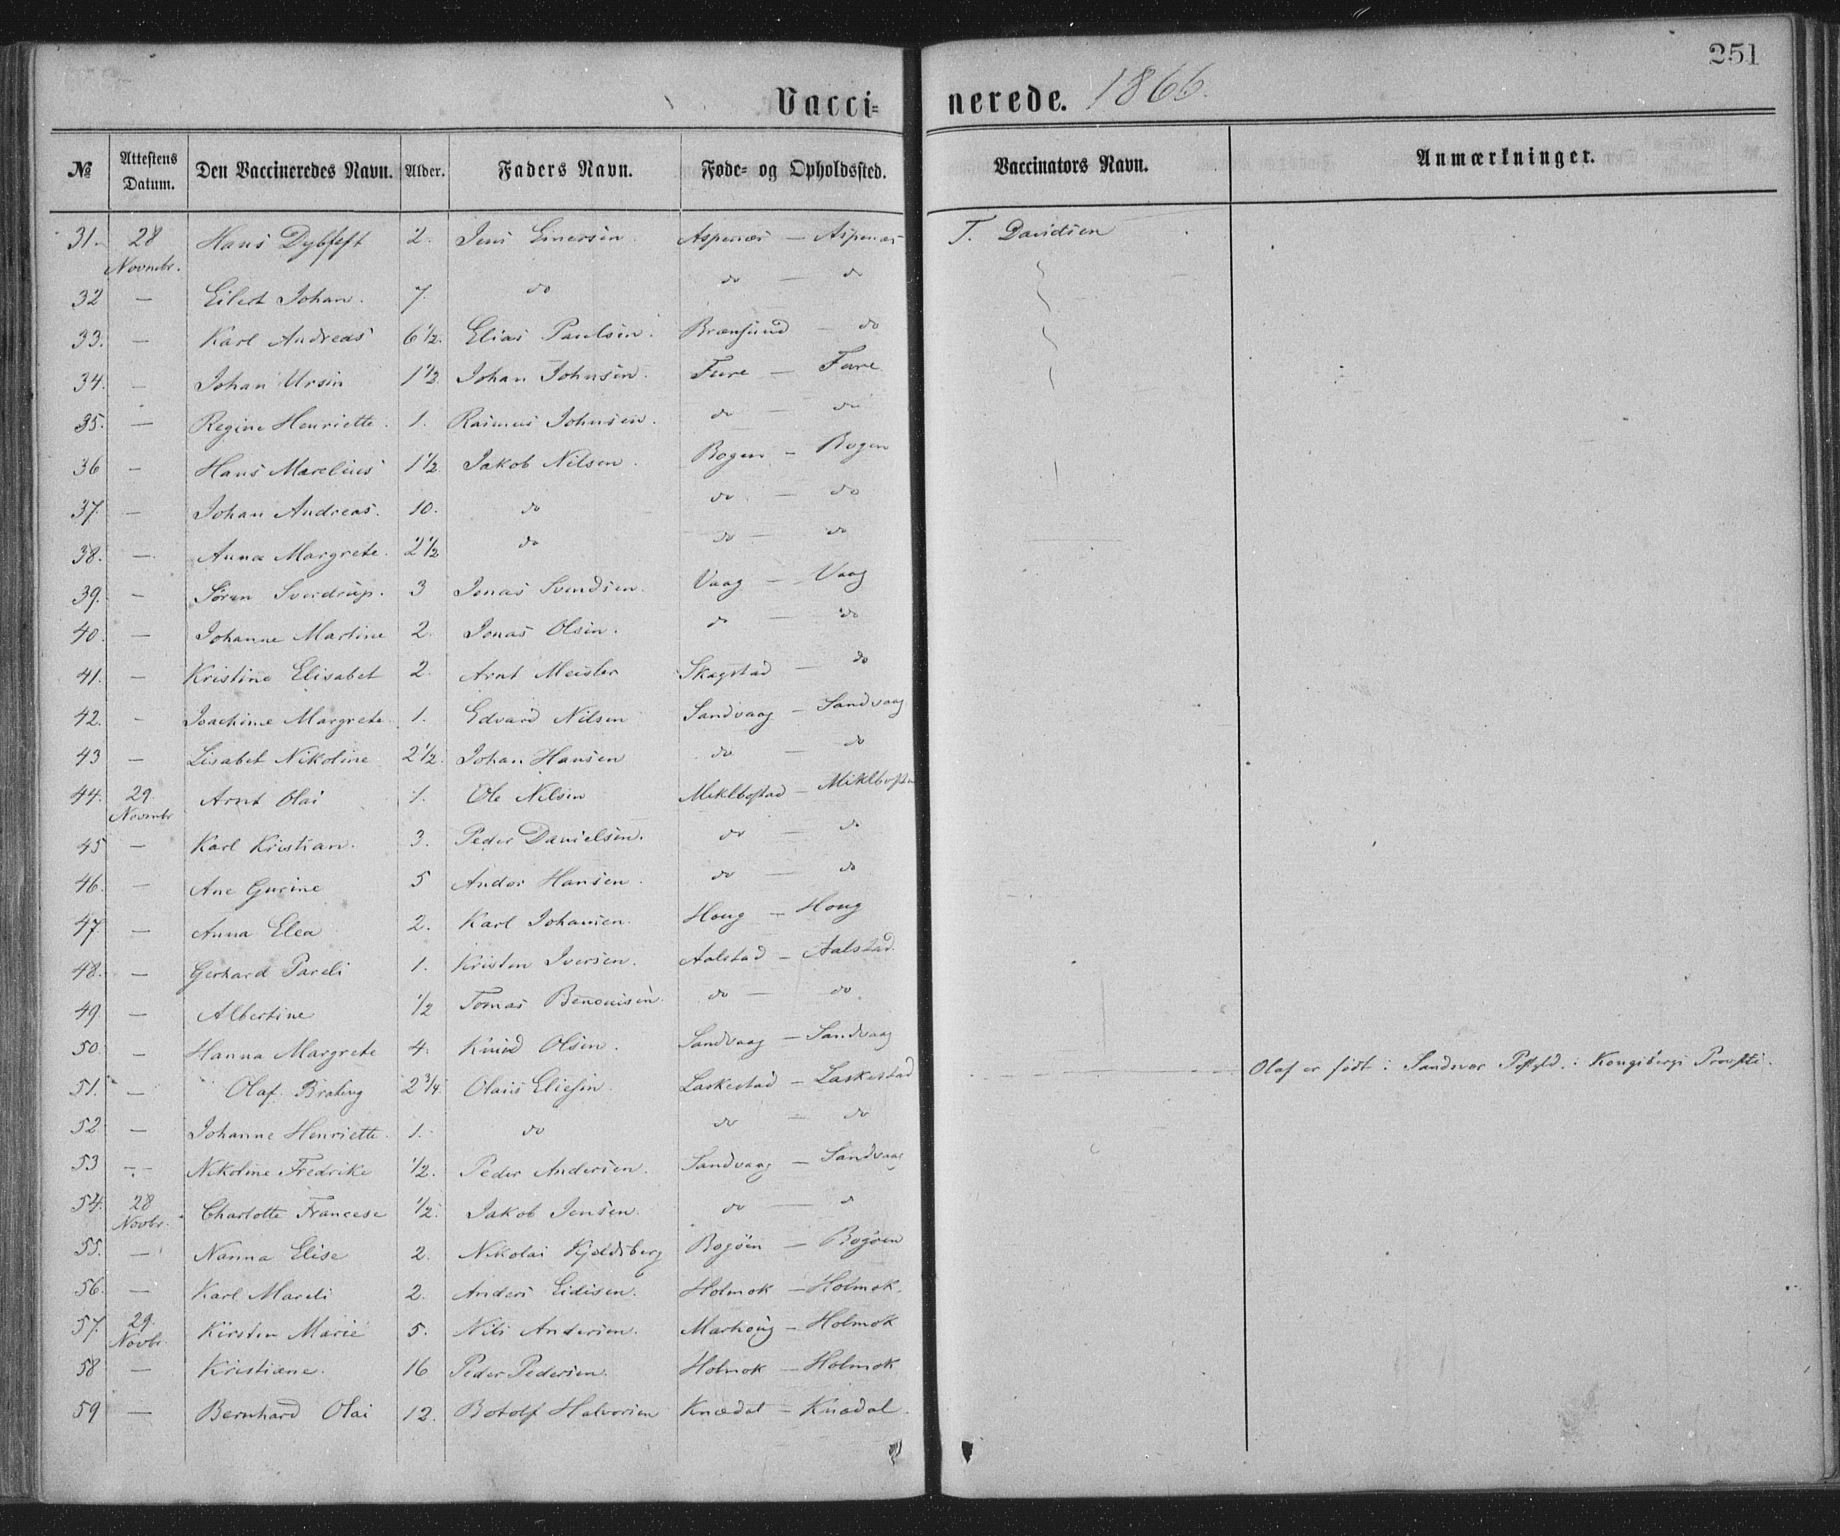 251
Vaccinerede. 1866.
№ Attestens Datum. Den Vaccineredes Navn. Alder. Faders Navn. Føde- og Opholdssted. Vaccinators Navn. Anmærkninger.
31. 28 Novmbr. Hans 2. Jens Aspenæs — Aspenæs T. Davidsen
32 — Eilert Johan. 7. do do — do
33. — Karl Andreas 6 1/2. Elias Paulsen. Brænsund — do
34. — Johan Ursin 1 1/2 Johan Johnsen. Fure — Fure
35. — Regine Henriette. 1. Rasmus Johnsen. do — do
36 — Hans Marelius 1 1/2. Jakob Nilsen. Bogen — Bogen
37 — Johan Andreas. 10. do do — do
38. — Anna Margrete. 2 1/2 do do — do
39. — Søren Sverdrup. 3 Jonas Svendsen. Vaag — Vaag
40. — Johanne Martine 2. Jonas Olsen. do — do
41. — Kristine Elisabet 2. Arnt Meisler Skagstad — do
42. — Joachime Margrete. 1. Edvard Nilsen Sandvaag — Sandvaag
43 — Lisabet Nikoline 2 1/2. Johan Hansen do — do
44. 29 Novmbr Arnt Olai 1. Ole Nilsen Miklbostad — Miklbostad
45 — Karl Kristian. 3. Peder Danielsen. do — do
46. — Ane Gurine 5 Andor Hansen. do — do
47. — Anna Elea 2. Karl Johansen. Houg — Houg
48. — Gerhard Pareli 1. Kristen Iversen. Aalstad — Aalstad.
49. — Albertine 1/2 Tomas Benonisen. do — do
50. — Hanna Margrete 4. Knud Olsen. Sandvaag — Sandvaag
51. — Olaf Brateng 2 3/4 Olaus Eliesen. Laskestad — Laskestad Olaf er født i Sandsvær Pstgld. i Kongsbergs Provsti.
52 — Johanne Henriette. 1. do do — do
53 — Nikoline Fredrike 1/2. Peder Andersen. Sandvaag — Sandvaag
54. 28 Novbr. Charlotte Francese 1/2. Jakob Jensen. do —
55. — Nanna Elise 2. Nikolai Kjeldsberg Bogøen — Bogøen
56. — Karl Mareli 2. Anders Eidisen. Holmok — Holmok.
57. 29. Novbr. Kirsten Marie 5. Nils Andersen. Marhoug — Holmok
58 — Kristiane. 16 Peder Pedersen. Holmok — Holmok
59 — Bernhard Olai 12. Botolf Halvorsen Knædal — Knædal.